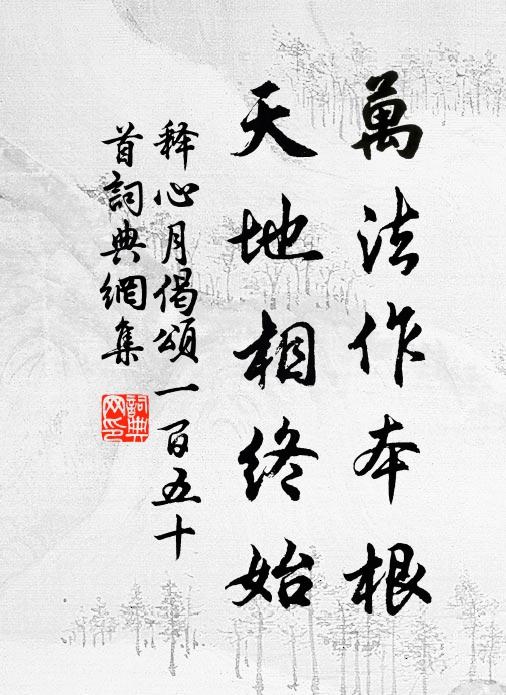 萬法作本根
天地相終始
释心月偈頌一百五十
首詞典網集
詞典网印